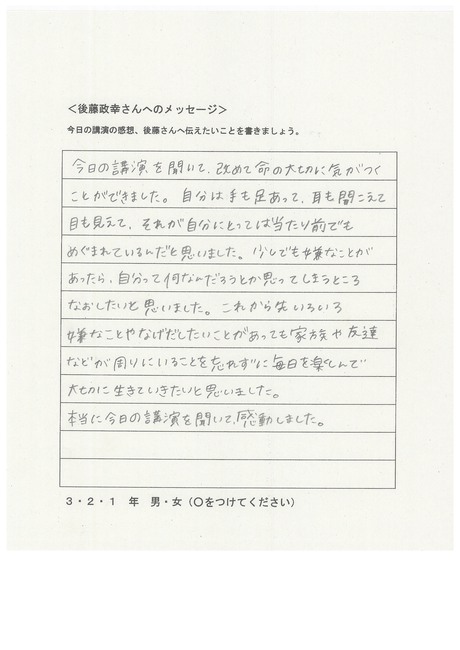 ＜後藤政幸さんへのメッセージ＞
今日の講演の感想、後藤さんへ伝えたいことを書きましょう。
今日の講演を聞いて、改めて命の大切に気がつく
ことができました。自分は手も足あって、耳も聞こえて
目も見えて、それが自分にとっては当たり前でも
めぐまれているんだと思いました。少しでも嫌なことが
あったら、自分って何なんだろうとか思ってしまうところ
なおしたいと思いました。これから先いろいろ
嫌なことやなげだしたいことがあっても家族や友達
などが周りにいることを忘れずに毎日を楽しんで
大切に生きていきたいと思いました。
本当に今日の講演を聞いて、感動しました。
３・２・１　年　男・女（〇をつけてください）